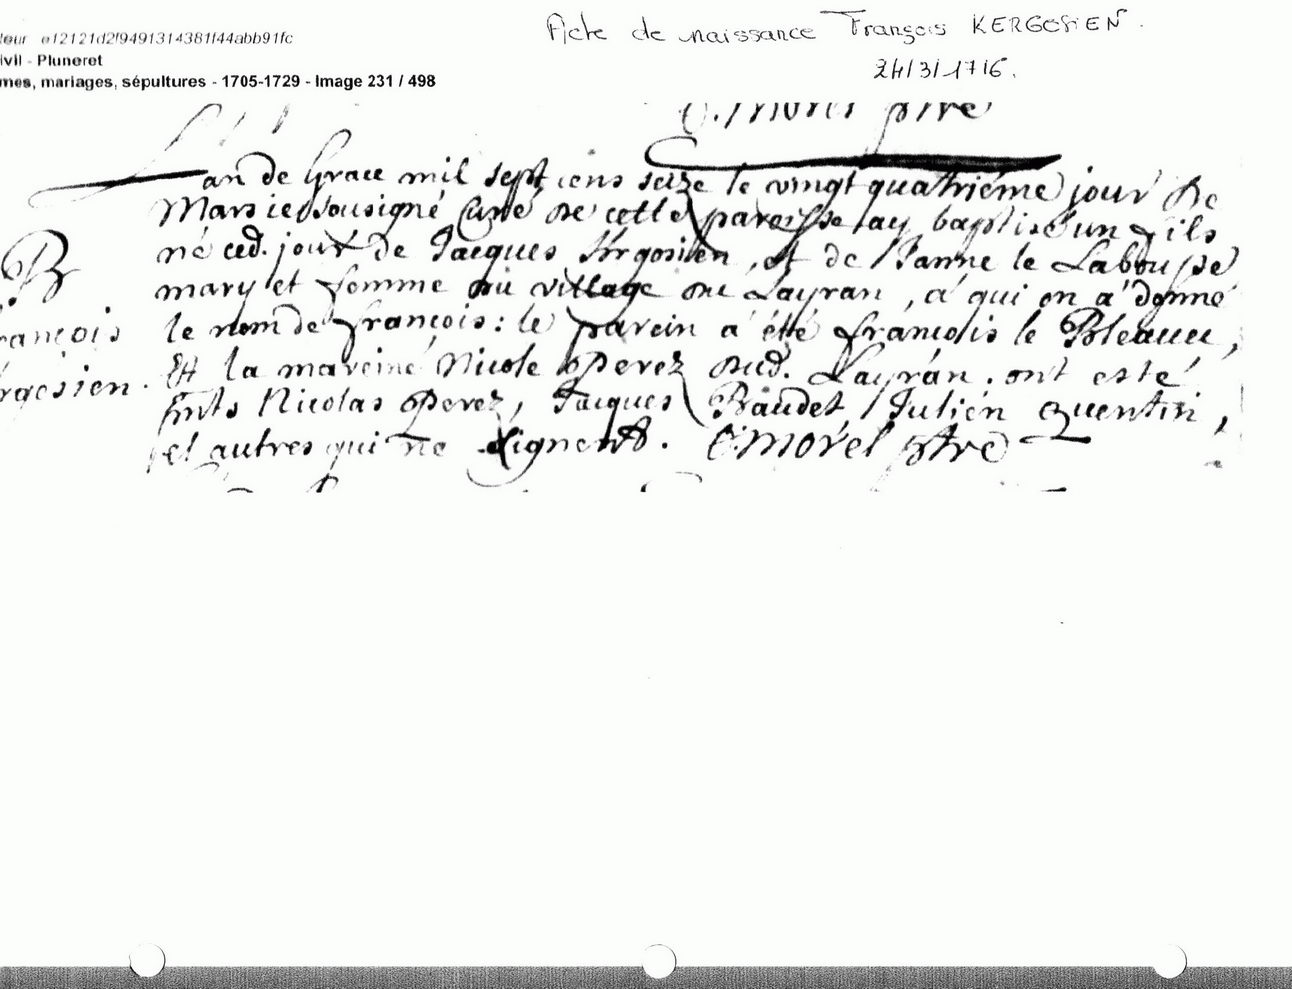 Acte de naissance François KERGOSIEN.
24/3/1716.
teur e12121d2f9491314381f44abb91fc
ivil - Pluneret
mes, mariages, sépultures - 1705-1729 - Image 231 / 498
ptre
L'an de Grace mil sept cens seize le vingt quatriéme jour de
Mars ie sousigné Curé de cette paroisse ay baptisé un fils
né ced. jour de Jacques Krgosien, et de Janne le Labousse
mary et femme du village de Layran, a qui on a donné
le nom de françois : le parein a été francois le Bleavec,
Et la mareine Nicole Perez dud. Layran. ont esté
pnts Nicolas Perez, Jacques Baudet, Julien Quentin,
et autres qui ne signent. O. Morel ptre
B
rançois
rgosien.